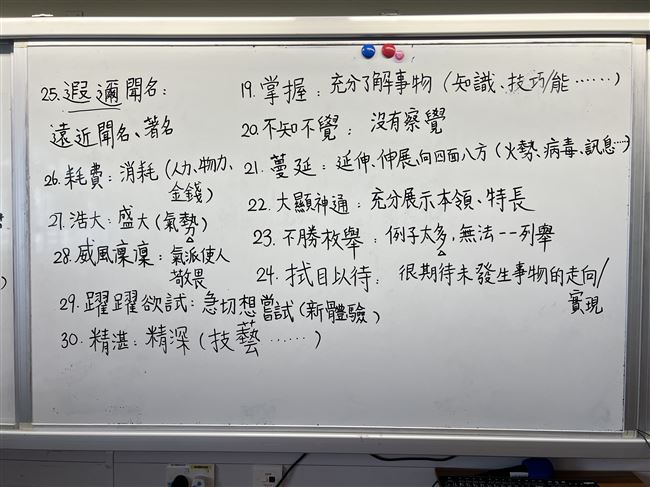 19.掌握：充分了解事物（知識、技巧/能……）
20.不知不覺：沒有察覺
21.蔓延：延伸、伸展、向四面八方（火勢、病毒、訊息…）
22.大顯神通：充分展示本領、特長
23.不勝枚舉：例子太多，無法一一列舉
24.拭目以待：很期待未發生事物的走向/
實現
25.遐邇聞名：
遠近聞名、著名
26.耗費：消耗（人力、物力、
金錢）
27.浩大：盛大（氣勢）
28.威風凜凜：氣派使人
敬畏
29.躍躍欲試：急切想嘗試（新體驗）
30.精湛：精深（技藝……）